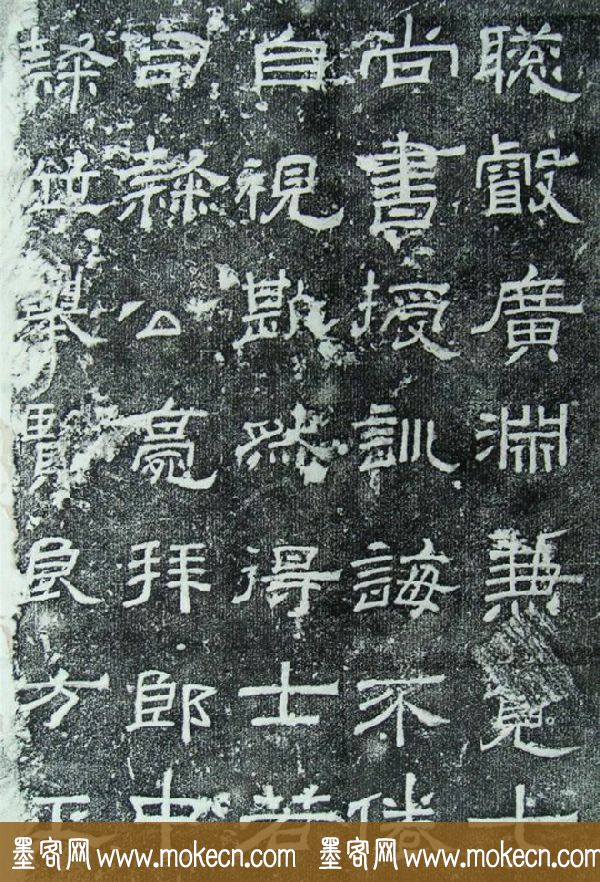 聰叡廣淵兼覽七
尚書授訓誨不倦
自視斯然得士若
司隸公亮拜郎中
隸並舉賢良方正
墨客网 www.mokecn.com 墨客网 www.mokecn.com